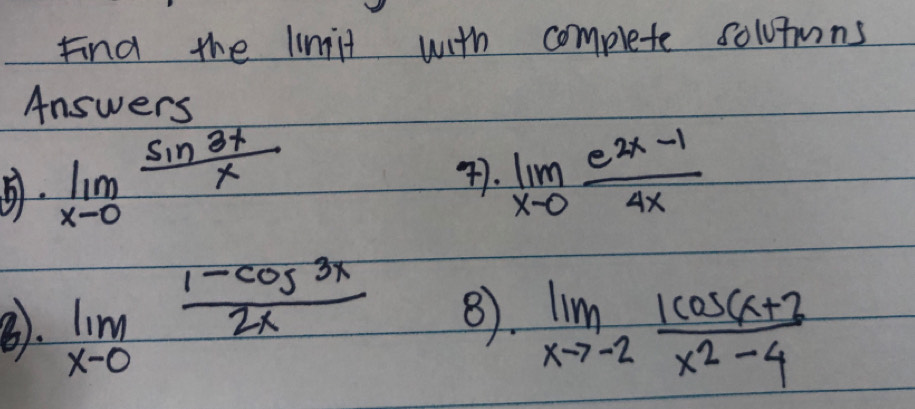 Find the limit with complete solutions
Answers
5). lim x-0 sin 3x / x
7). lim x-0 e 2x -1 / 4x
6). lim x-0 1-cos 3x / 2x
8). lim x->-2 1cos(x+2 / x2-4